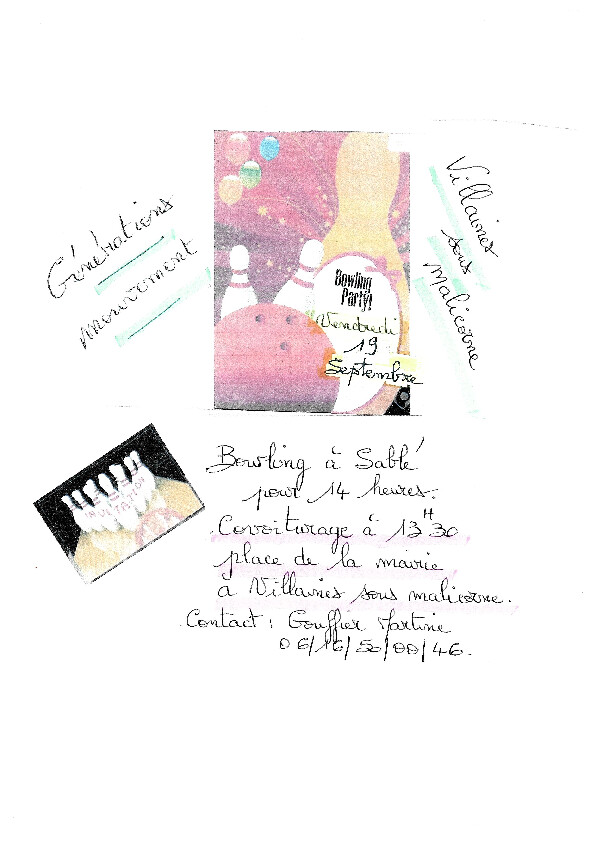 Générations
mouvement
Villaines
sous
malicorne
Bowling
Party!
Vendredi
19
Septembre
INVITATION
Bowling à Sablé
pour 14 heures.
Covoiturage à 13H30
place de la mairie
à Villaines sous malicorne.
Contact : Gouffier Martine
06/16/50/00/46.